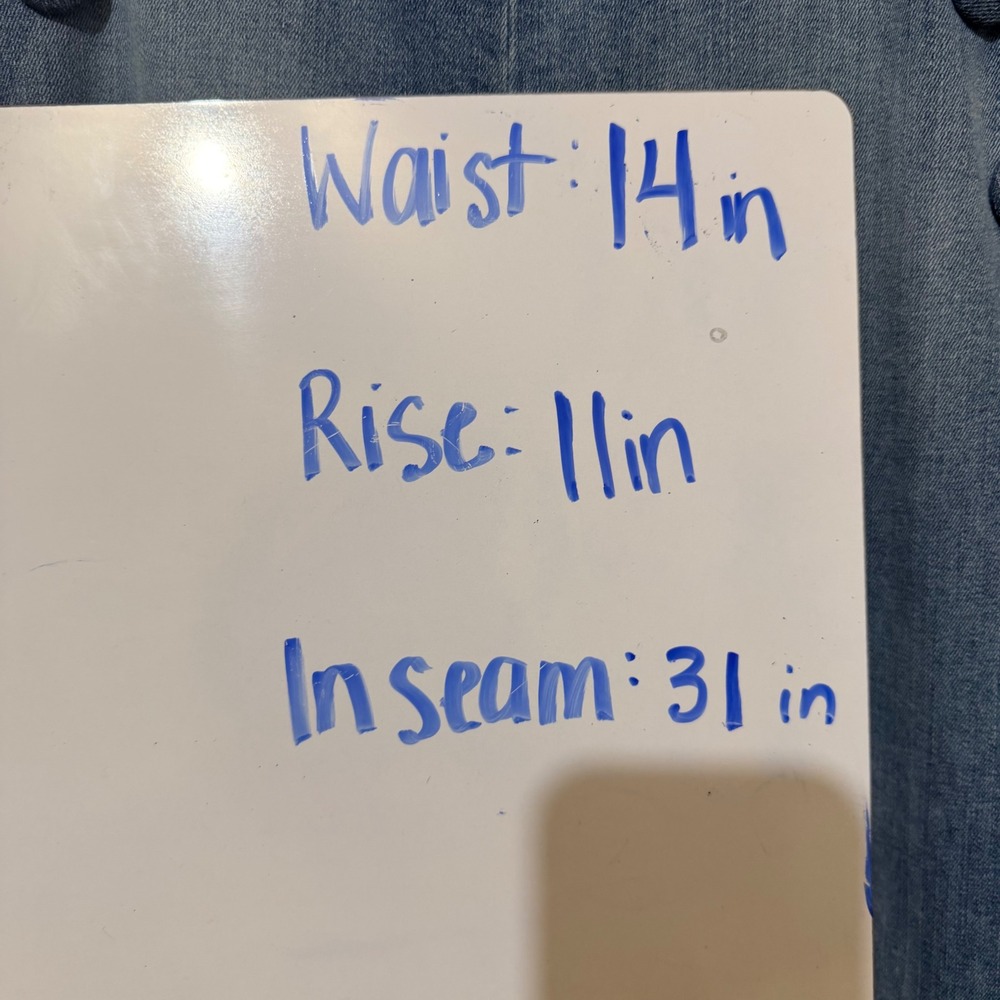 Waist: 14 in
Rise: 11 in
Inseam: 31 in